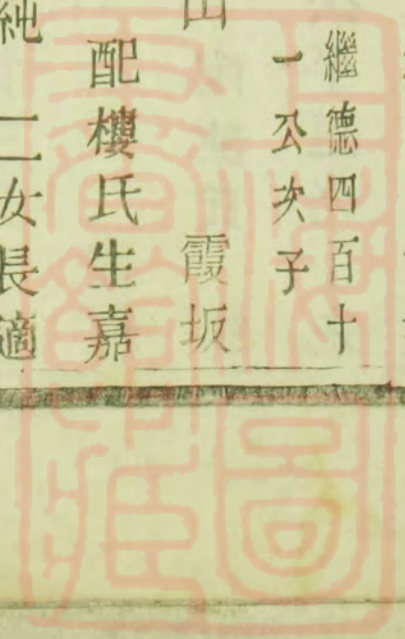 繼德四百十
一公次子
山 霞坂
配樓氏生嘉
純 二女長適